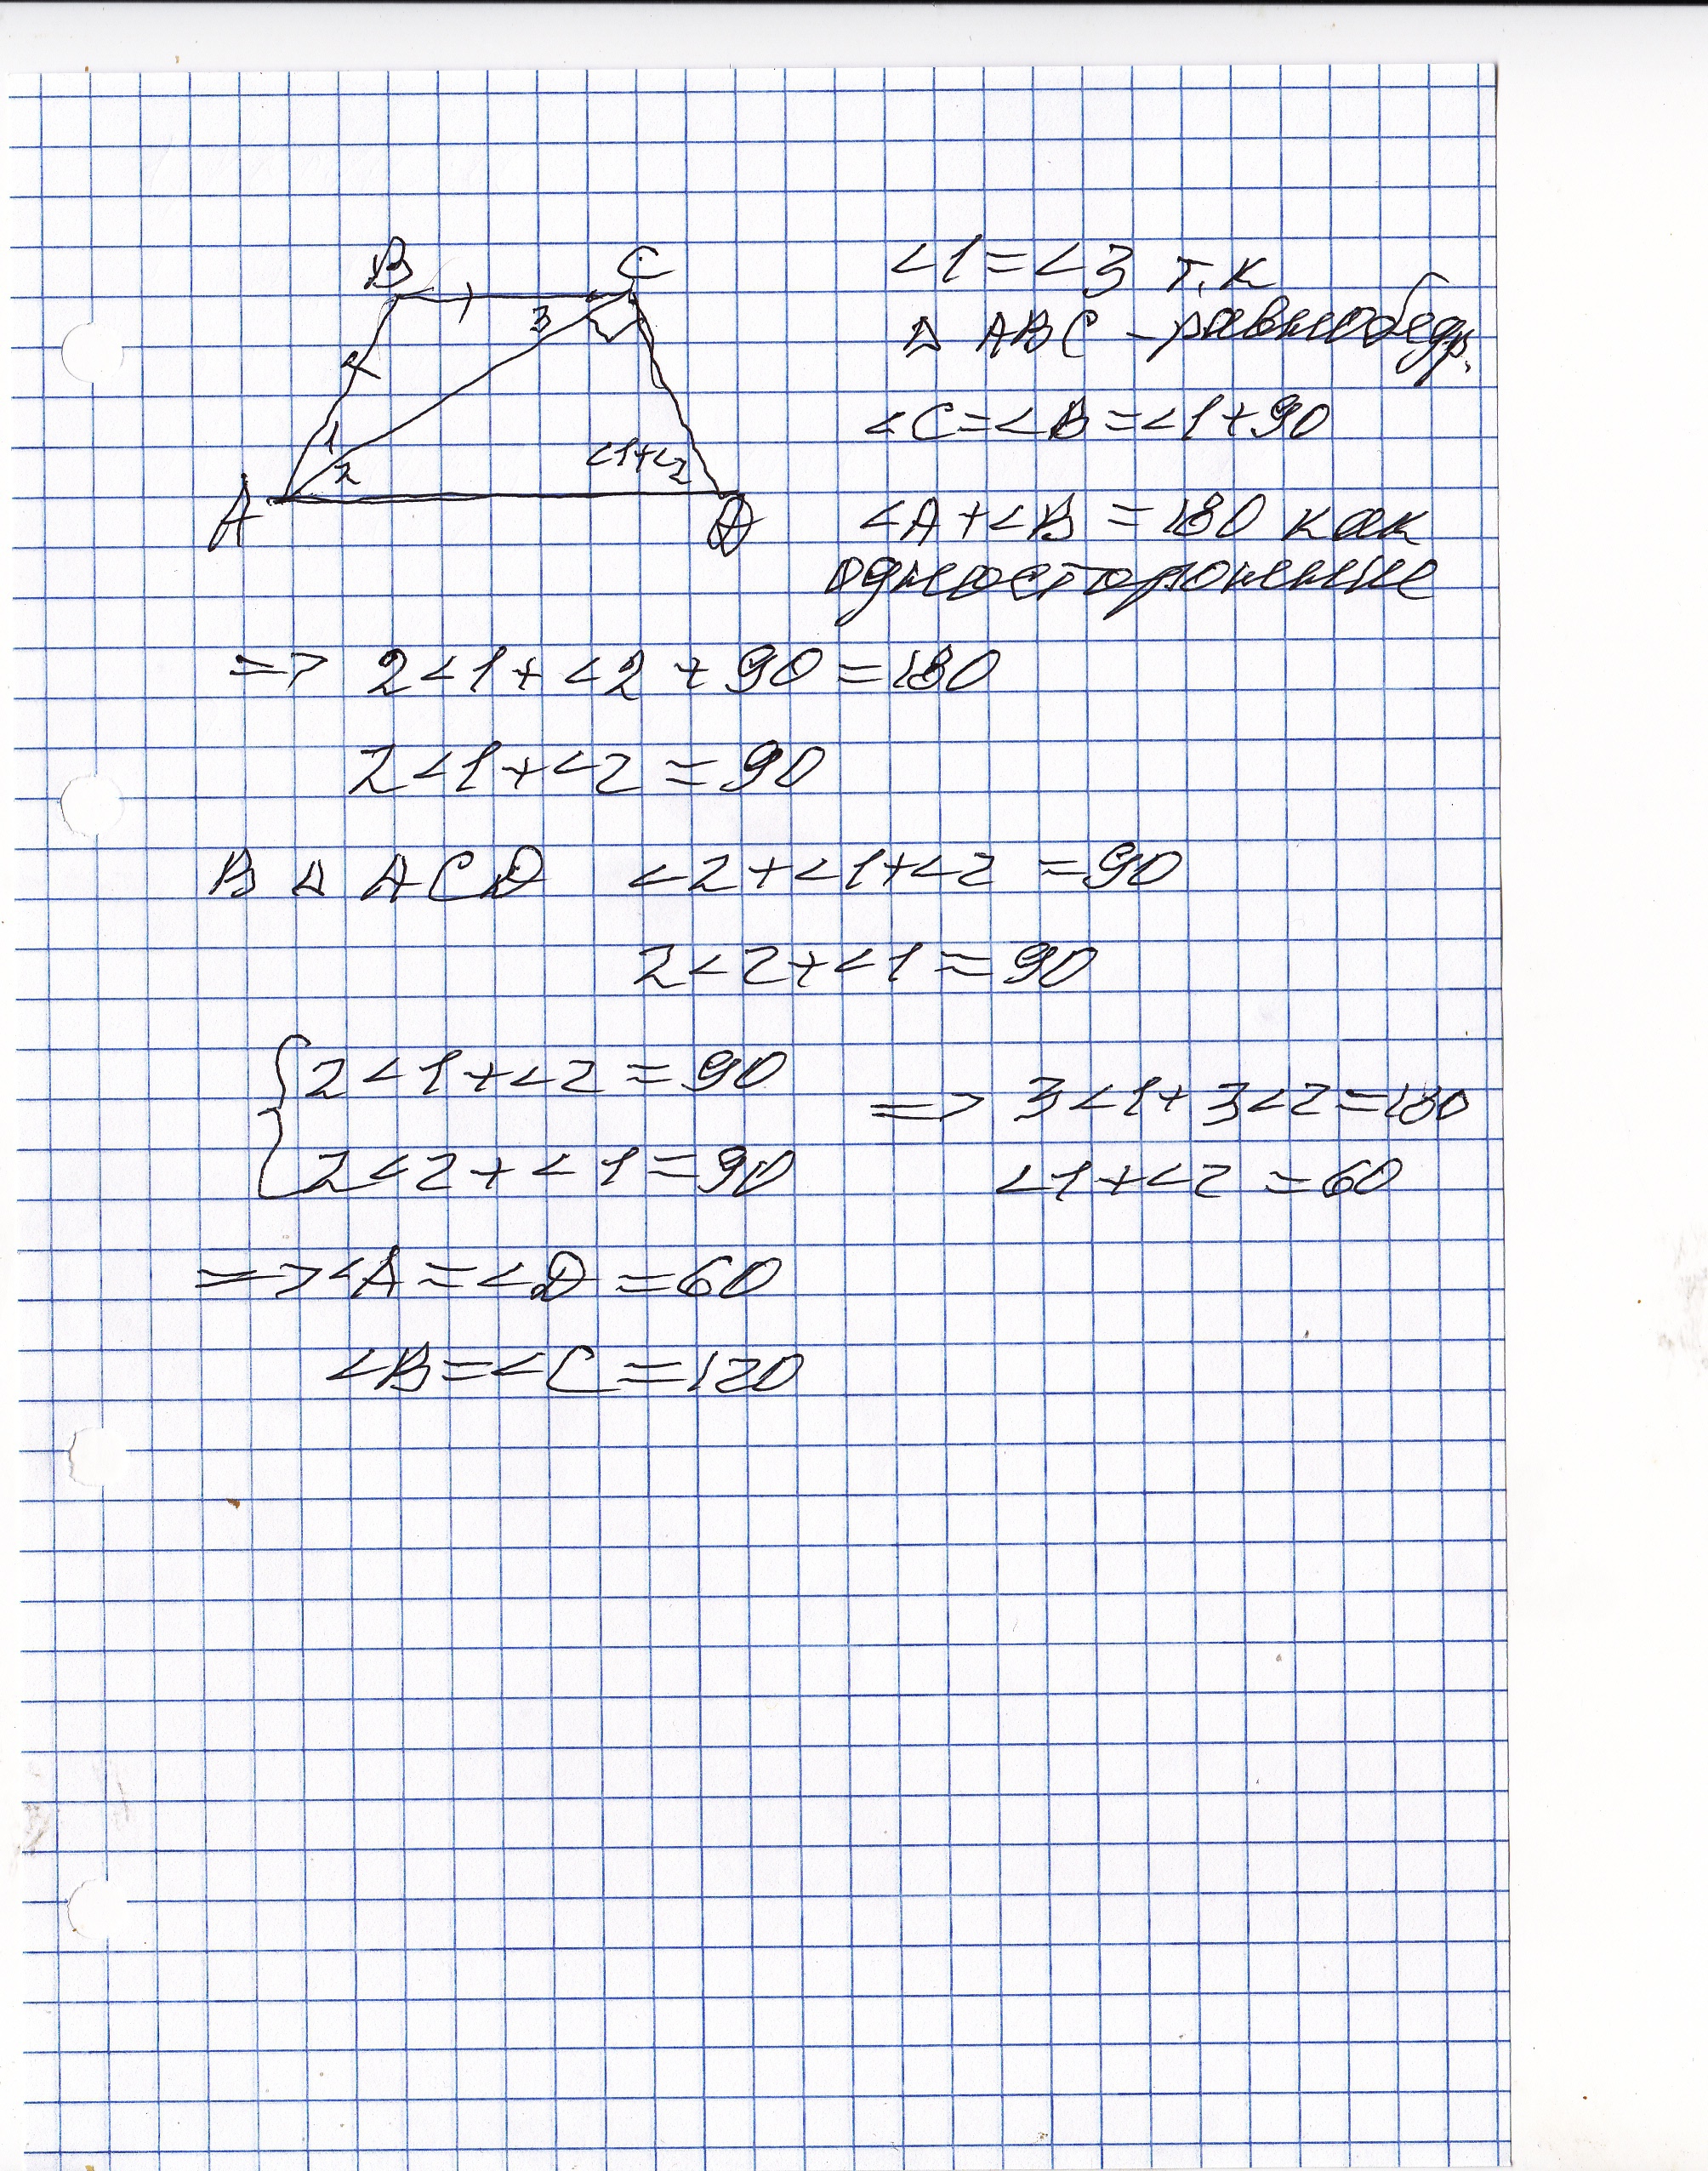 B C
3
1
2
<1+<2
A D
<1=<3 т.к
Δ ABC - равнобедр.
<C=<B=<1+90
<A+<B=180 как
односторонние
=> 2<1+<2+90=180
2<1+<2=90
В Δ ACD <2+<1+<2=90
2<2+<1=90
{2<1+<2=90
2<2+<1=90
=> 3<1+3<2=180
<1+<2=60
=> <A=<D=60
<B=<C=120